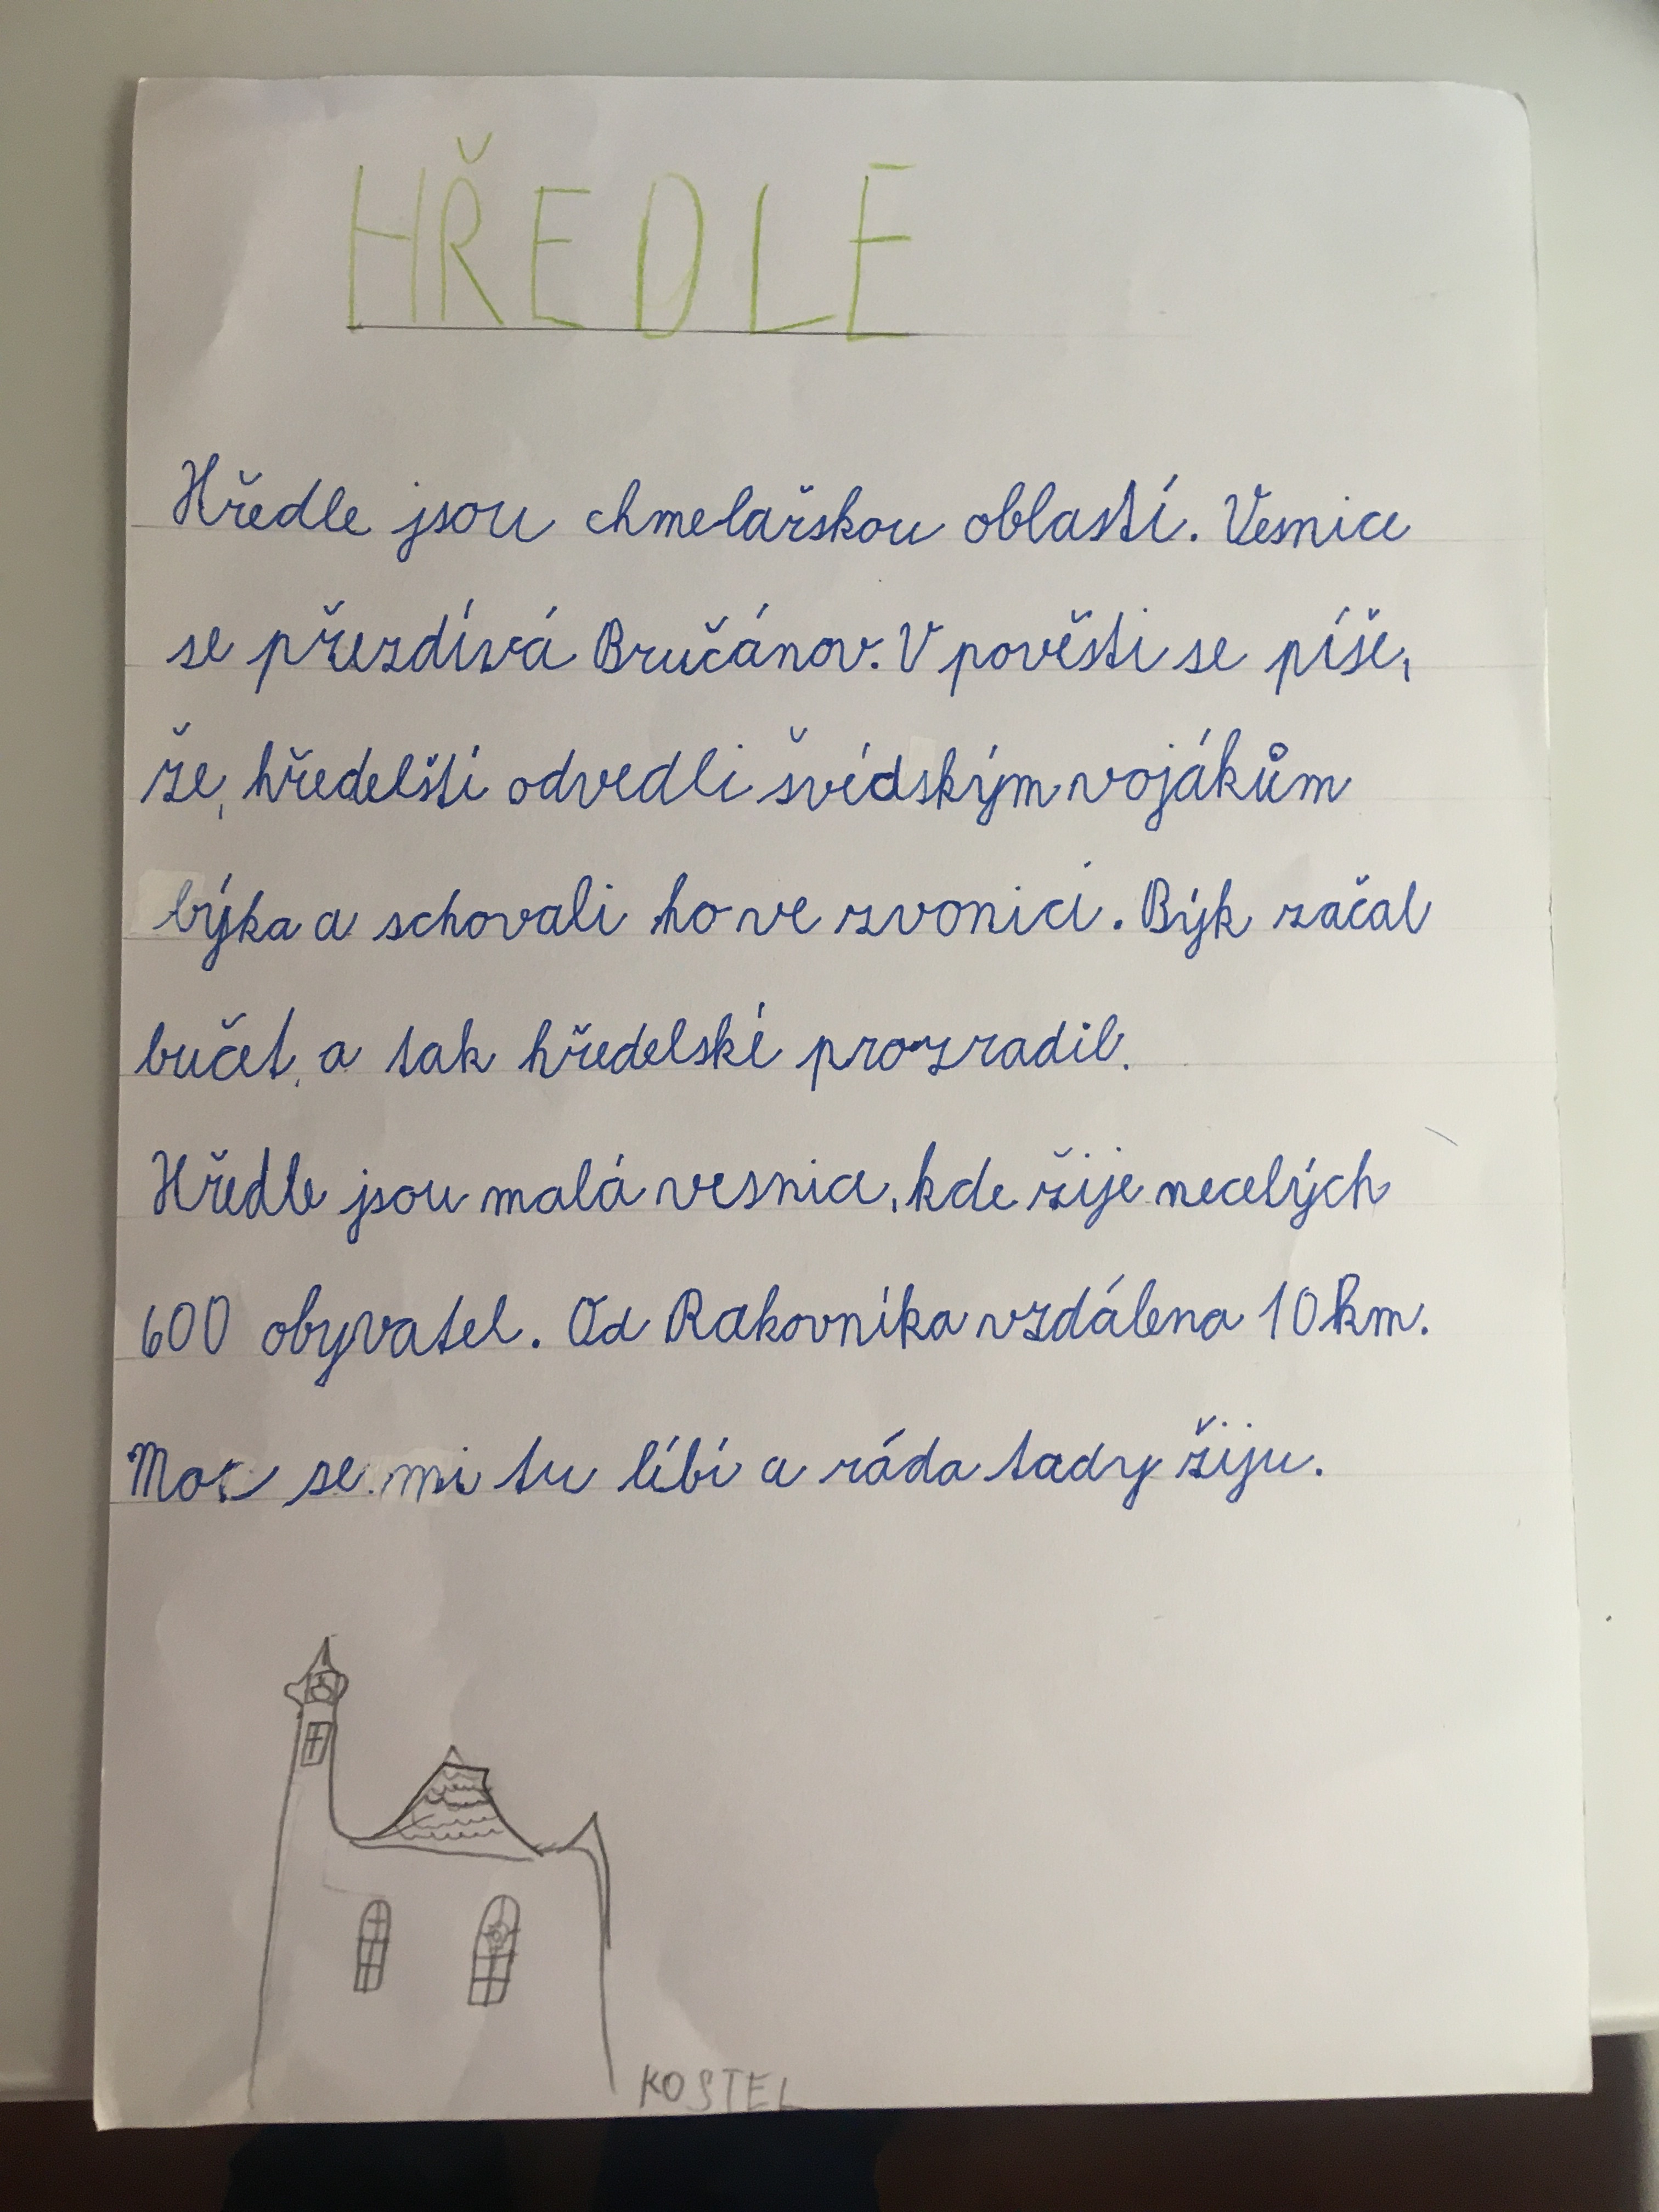 HŘEDLE
Hředle jsou chmelařskou oblastí. Vesnice
se přezdívá Bručánov. V pověsti se píše,
že, hředelští odvedli švédským vojákům
býka a schovali ho ve zvonici. Býk začal
bučet, a tak hředelské prozradil.
Hředle jsou malá vesnice, kde žije necelých
600 obyvatel. Od Rakovníka vzdálena 10 km.
Moc se mi tu líbí a ráda tady žiju.
KOSTEL